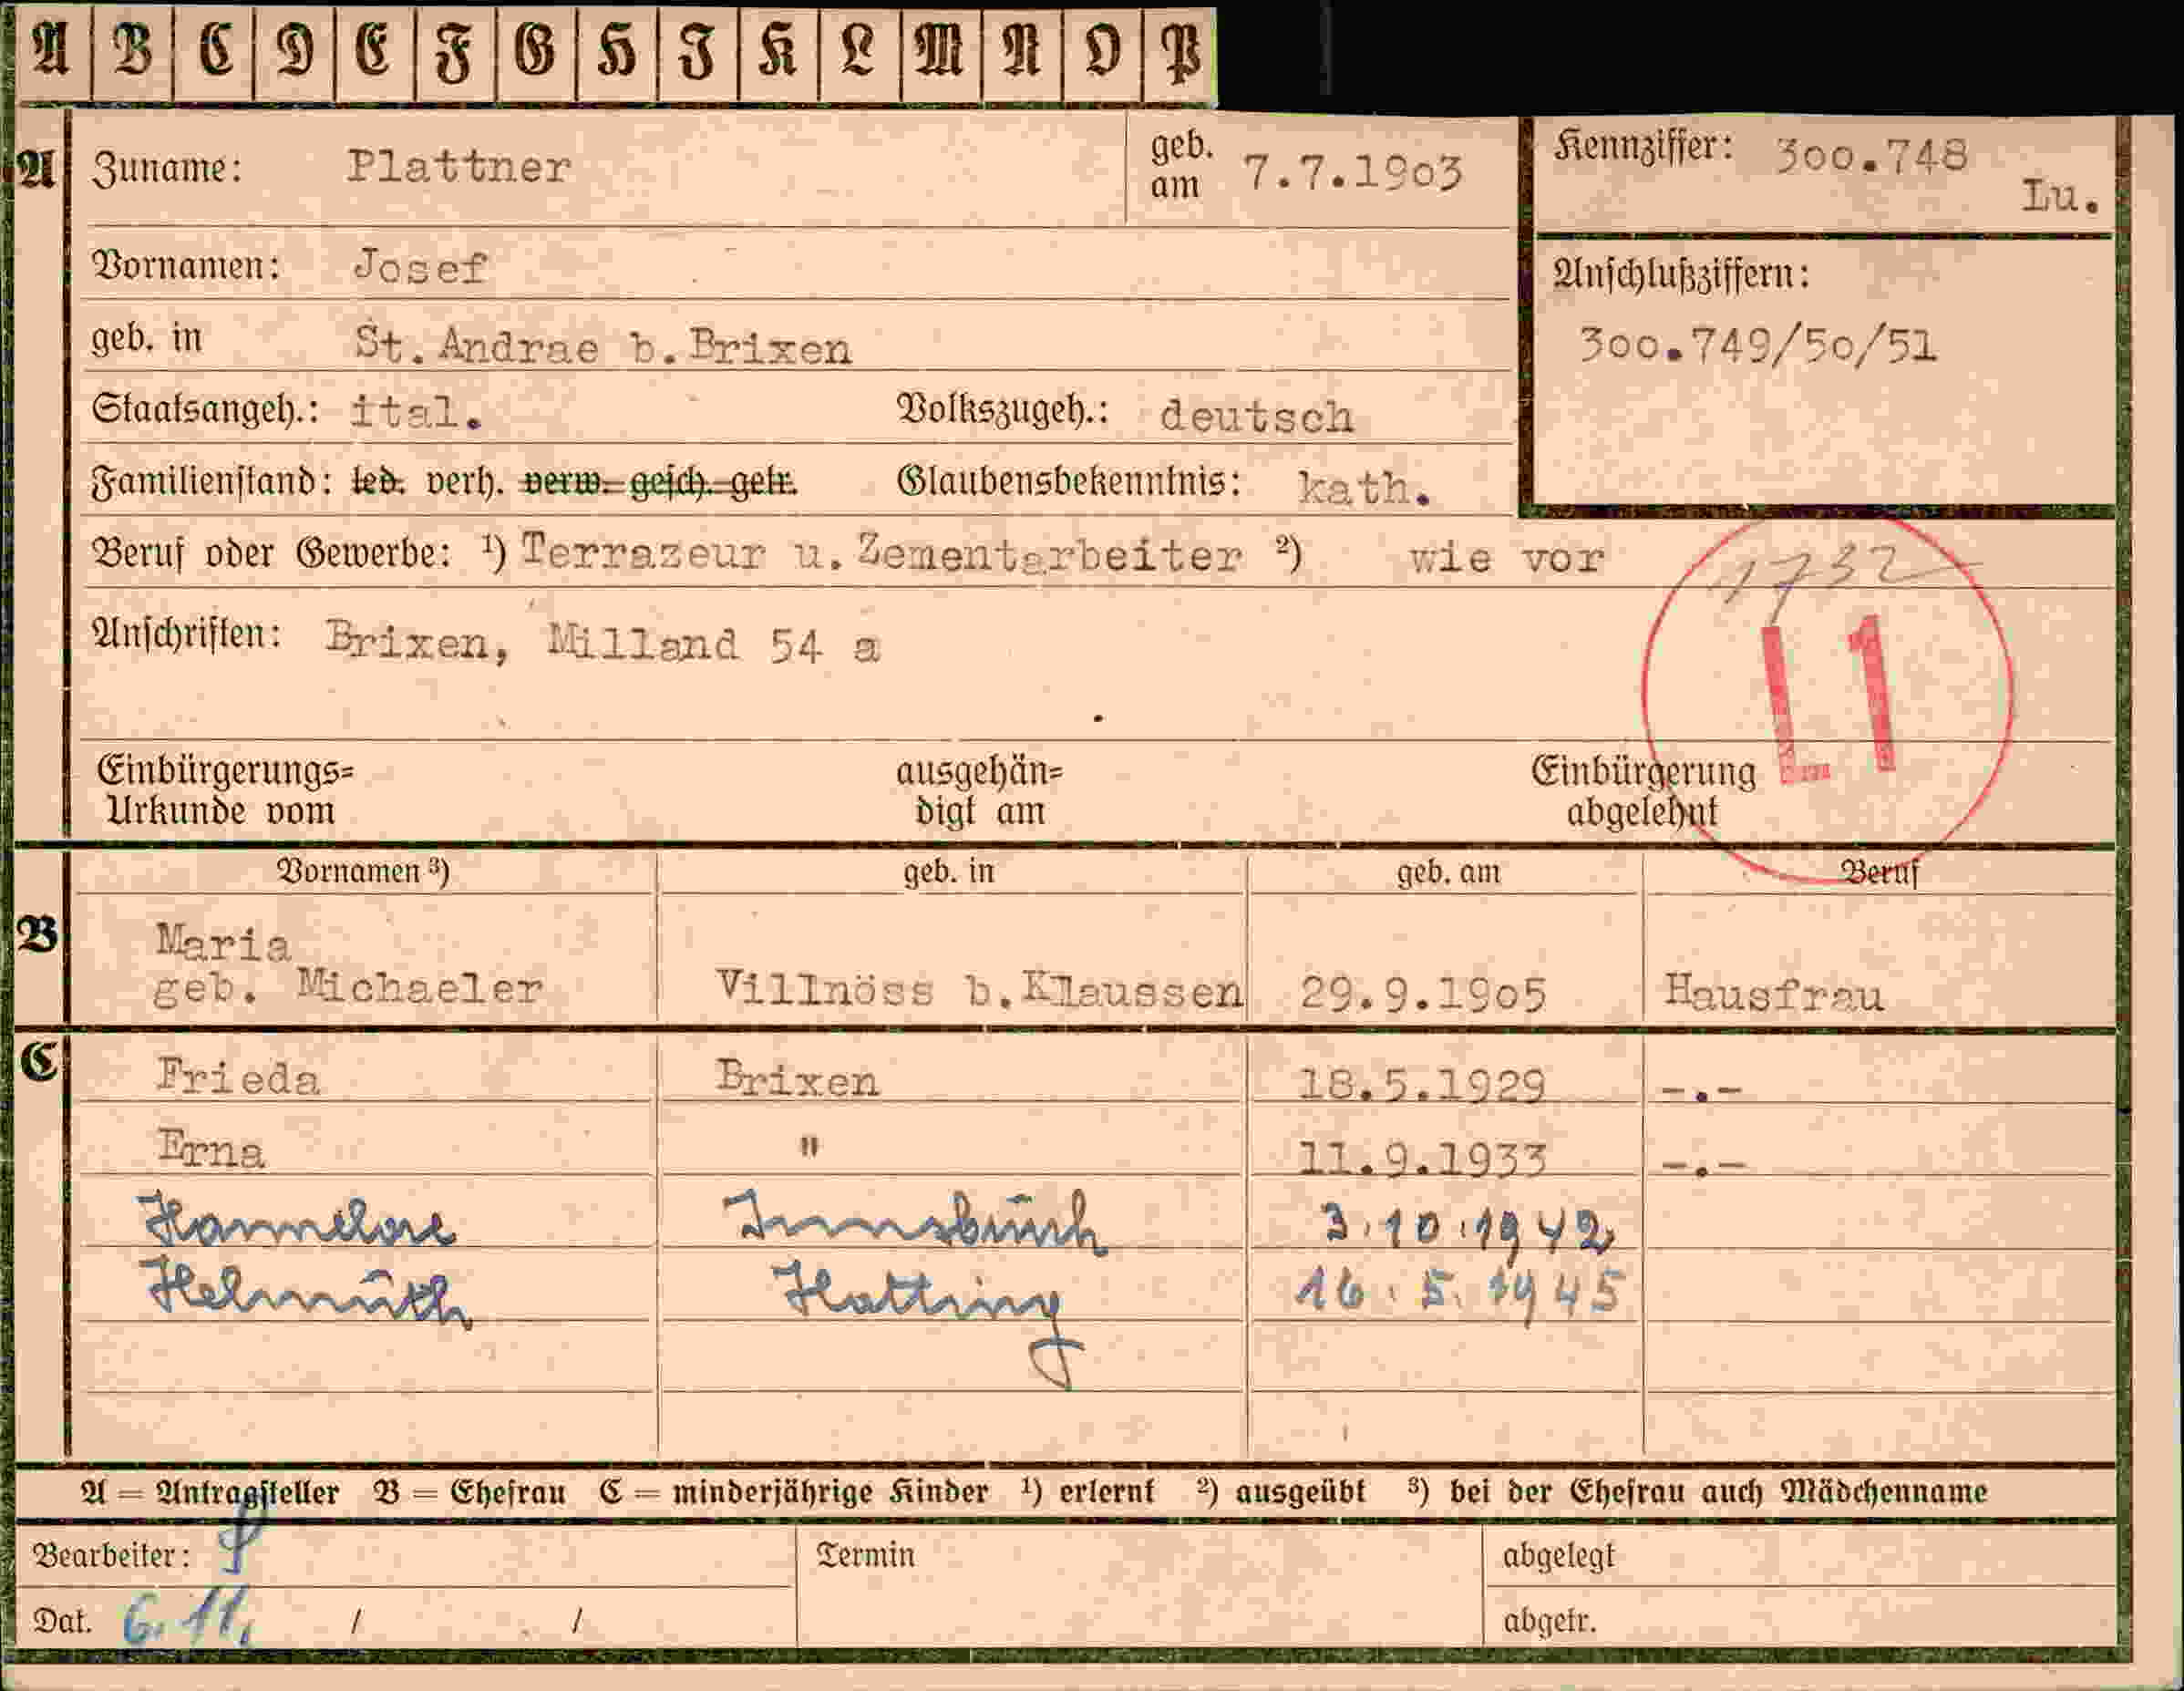 A B C D E F G H J K L M N O P
A Zuname: Plattner geb. am 7.7.1903 Kennziffer: 300.748 Lu.
Vornamen: Josef Anschlußziffern:
geb. in St. Andrae b. Brixen 300.749/50/51
Staatsangeh.: ital. Volkszugeh.: deutsch
Familienstand: led. verh. verw. gesch. getr. Glaubensbekenntnis: kath.
Beruf oder Gewerbe: ¹) Terrazeur u. Zementarbeiter ²) wie vor 1732
Anschriften: Brixen, Milland 54 a L1
Einbürgerungs= ausgehän= Einbürgerung
Urkunde vom digt am abgelehnt
Vornamen ³) geb. in geb. am Beruf
B Maria
geb. Michaeler Villnöss b. Klaussen 29.9.1905 Hausfrau
C Frieda Brixen 18.5.1929 -.-
Erna " 11.9.1933 -.-
Hannelore Innsbruck 3.10.1942
Helmuth Hatting 16.5.1945
A = Antragsteller B = Ehefrau C = minderjährige Kinder ¹) erlernt ²) ausgeübt ³) bei der Ehefrau auch Mädchenname
Bearbeiter: Termin abgelegt
Dat. 6.11. / / abgetr.